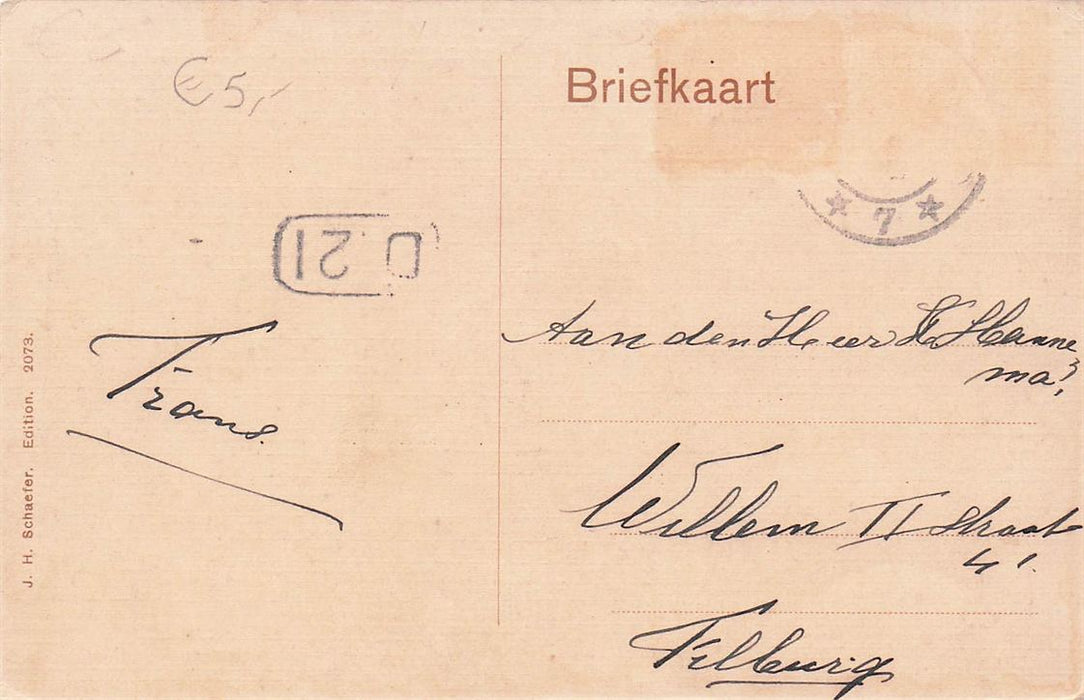 € 5,-
Briefkaart
7
D. 21
Frans.
Aan den Heer H Hanne
ma,
Willem II straat
4'.
Tilburg
J. H. Schaefer. Edition. 2073.